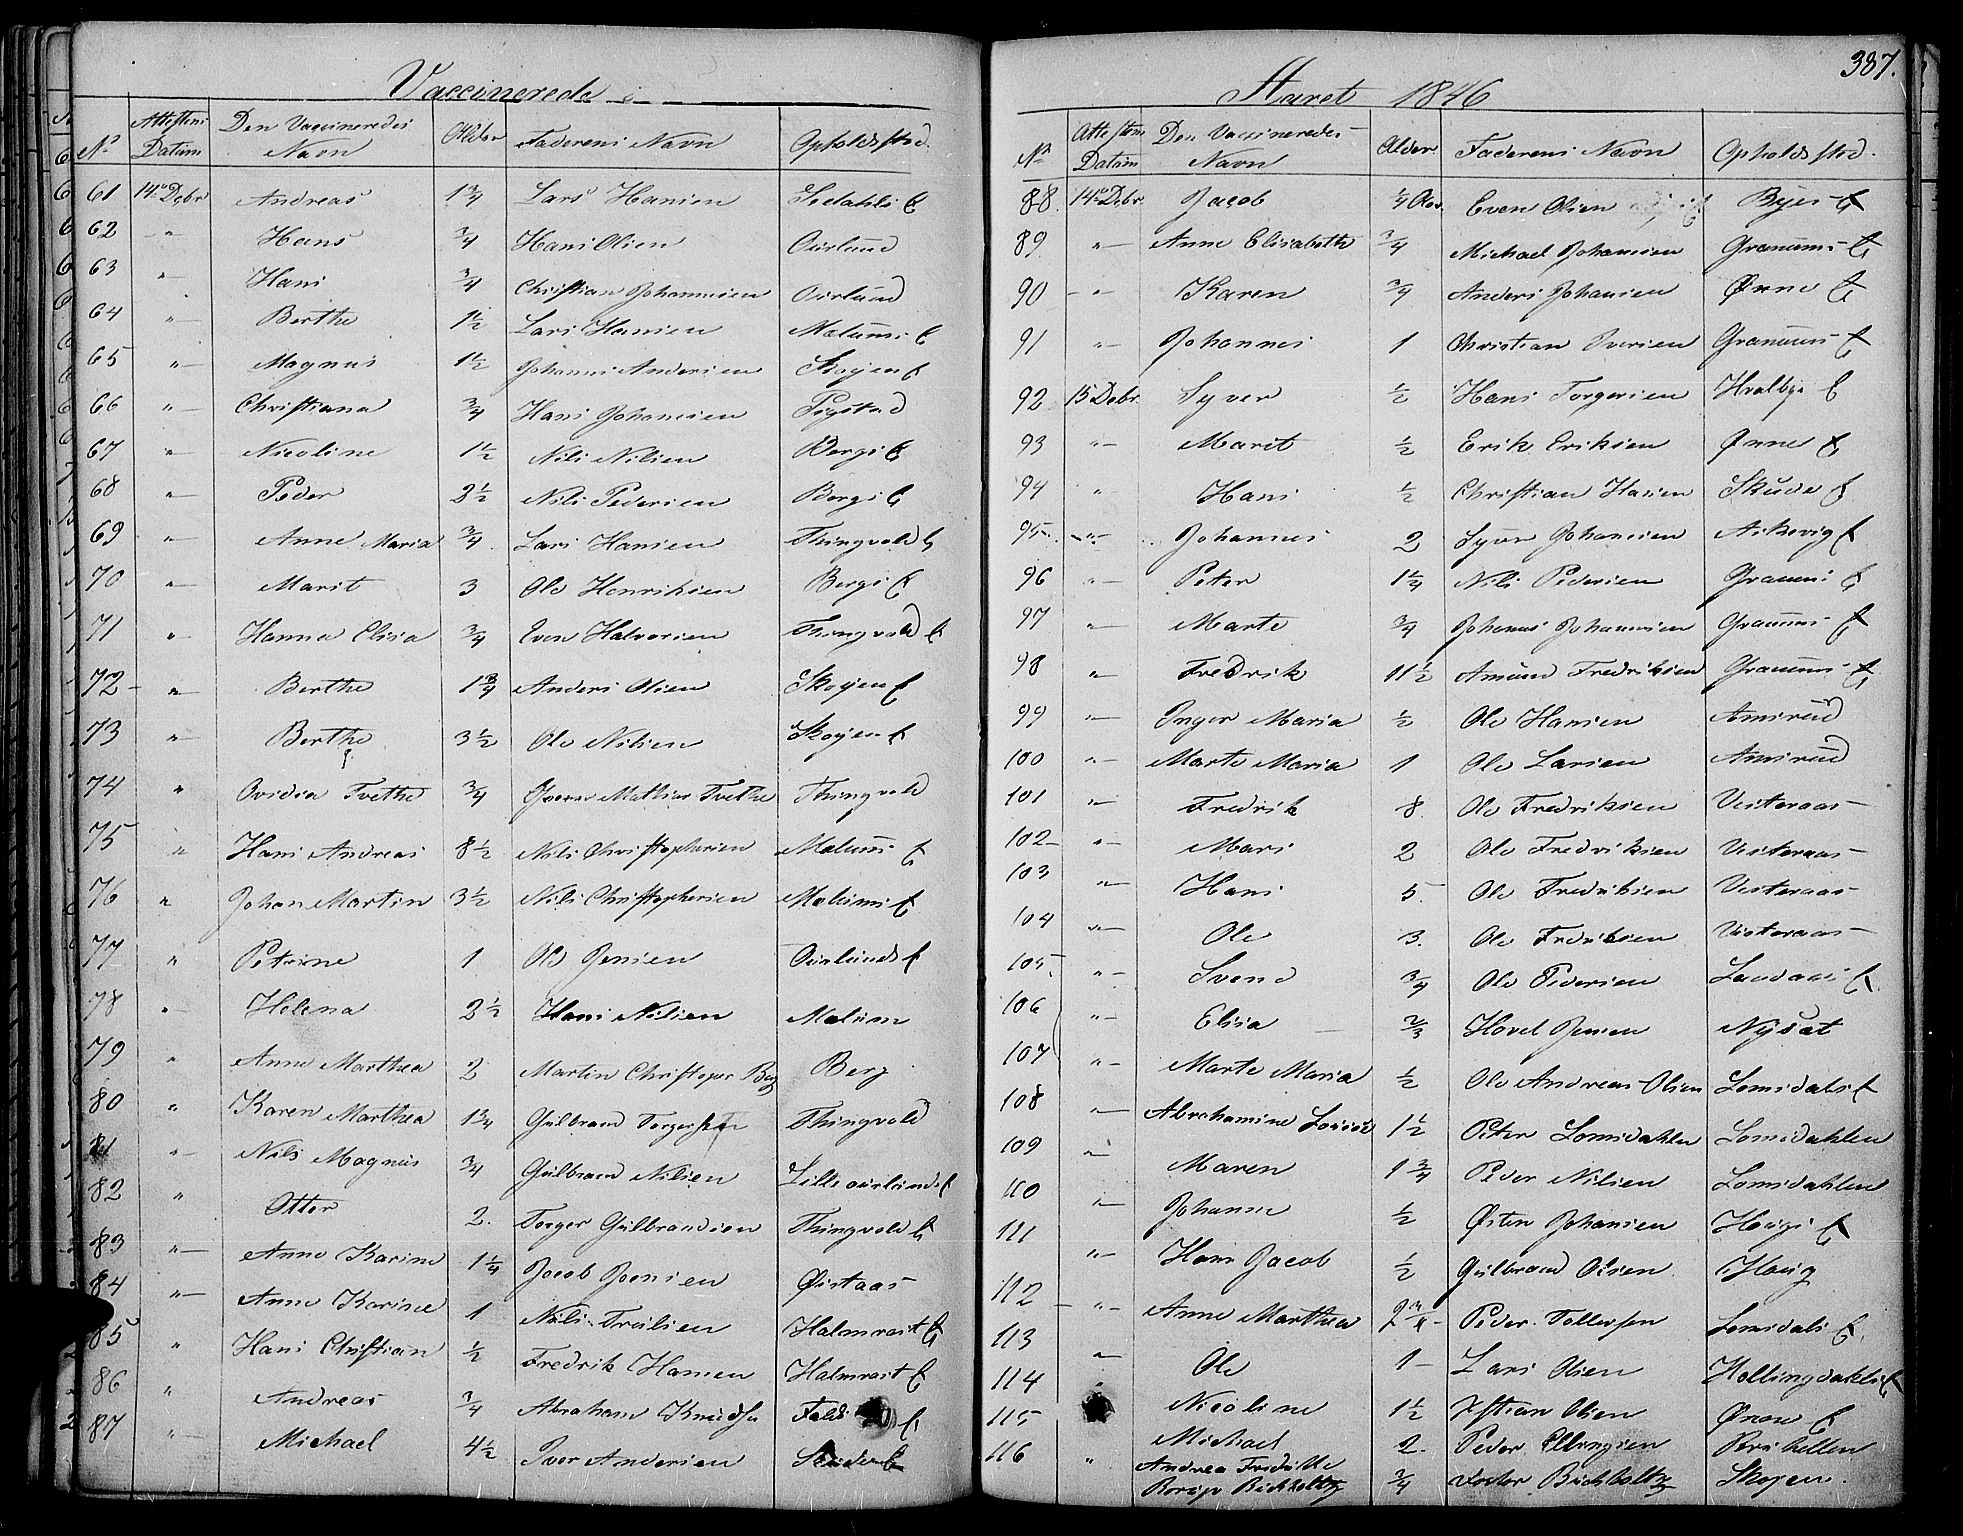 Vaccinerede i
No Attestens Datum Den Vaccineredes Navn Alder Faderens Navn Opholdssted.
61 14de Debr Andreas 1 3/4 Lars Hansen
62 " Hans 3/4 Hans Olsen Ourlund
63 " Hans 3/4 Christian Johannesen Ourlund
64 " Berthe 1 1/2 Lars Hansen Melums E
65 " Magnus 1 1/2 Johannes Andersen Skojen E
66 " Christiana 3/4 Hans Johansen
67 " Nicoline 1 1/2 Nils Nilsen Bergs E
68 " Peder 2 1/2 Nils Pedersen Bergs E
69 " Anne Maria 3/4 Lars Hansen Thingvold E
70 " Marit 3 Ole Henriksen Bergs E
71 " Hanna Elisa 3/4 Even Halvorsen Thingvold E
72 " Berthe 1 3/4 Anders Olsen Skojen E
73 " Berthe 3 1/2 Ole Nilsen Skojen E
74 " Ovidia Tvethe 3/4 Mathias Tvethe Thingvold
75 " Hans Andreas 8 1/2 Nils Christophersen Melums E
76 " Johan Martin 3 1/2 Nils Christophersen Melums E
77 " Petrine 1 Ole Jensen Ourlunds E
78 " Helena 2 1/2 Hans Nilsen Melum
79 " Anne Marthea 2 Martin Christopher Berg Berg
80 " Karen Marthea 1 3/4 Gulbrand Torgersen Thingvold
81 " Nils Magnus 3/4 Gulbrand Nilsen Lilleourlunds E
82 " Otter 2. Torger Gulbrandsen Thingvold E
83 " Anne Karine 1 1/4 Jacob Jonsen Östaas
84 " Anne Karine 1 Nils Trulsen Halmrast E
85 " Hans Christian 1/2 Fredrik Hansen Halmrast E
86 " Andreas 3/4 Abraham Knudsen E
87 " Michael 4 1/2 Iver Andersen Skude E
387.
Aaret 1846
No Attestens Datum Den Vaccineredes Navn Alder. Faderens Navn Opholdssted.
88. 14de Debr. Jacob 1/4 Aar. Even Olsen Byes E
89 " Anne Elisabeth 3/4 Michael Johannesen Granums E
90 " Karen 3/4 Anders Johansen Önne E
91 " Johannes 1 Christian Iversen Granums E
92 15 Debr. Syver 1/2 Hans Torgersen Hvalbye E
93 " Marit 1/2 Erik Eriksen Önne E
94 " Hans 1/2 Christian Hansen Skude E
95 " Johannes 2 Syver Johansen Askevig E
96 " Peter 1 1/4 Nils Pedersen Granums E
97 " Marte 3/4 Johannes Johannesen Granums E
98 " Fredrik 11 1/2 Amund Fredriksen Granums E
99 " Inger Maria 1/2 Ole Hansen Amsrud
100 " Marte Maria 1 Ole Larsen Amsrud
101 " Fredrik 8. Ole Fredriksen Vesteraas
102 " Mari 2 Ole Fredriksen Vesteraas
103 " Hans 5. Ole Fredriksen Vesteraas
104 " Ole 3. Ole Fredriksen Vesteraas
105 " Svend 3/4 Ole Pedersen E
106 " Elisa 2/3 Hovel Jensen Nysæt
107 " Marte Maria 1/2 Ole Andreas Olsen Lomsdals E
108 " Abrahamine Lovise 1 1/2 Peter Lomsdahlen Lomsdahlen
109 " Maren 1 3/4 Peder Nilsen Lomsdahlen
110 " Johanne 1/2 Östen Johansen Hougs E
111 " Hans Jacob 1/2 Gulbrand Olsen Houg
112 " Anne Marthea 2 3/4 Peder Tollersen Lomsdals E.
113 " Ole 1 Lars Olsen Hellingdahls E
114 " Nicoline 1 1/2 Kristian Olsen Önne E
115 Michael 2. Peder Ellingsen
116 " Andrea Fredrikke Borgo Buchholtz 3/4 Buchholtz Skojen.